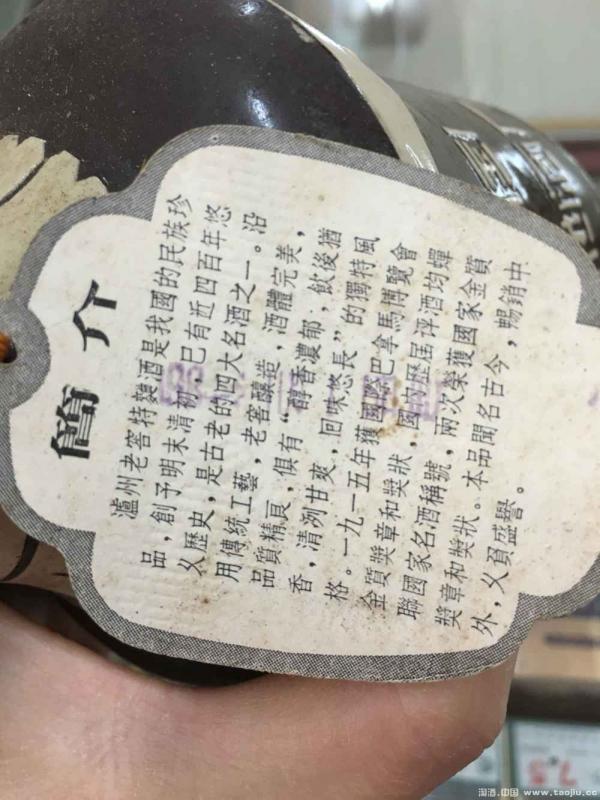 簡介
瀘州老窖特麯酒是我國的民族珍
品，創予明末清初，已有近四百年悠
久歷史，是古老的四大名酒之一。沿
用傳統工藝，老窖釀造，酒體完美，
品質精良，俱有“醇香濃郁，飲後猶
香，清洌甘爽，回味悠長”的獨特風
格。一九一五年獲國際巴拿馬博覽會
金質獎章和獎狀，國內歷屆評酒均蟬
聯國家名酒稱號，兩次榮獲國家金質
獎章和獎狀。本品聞名古今，暢銷中
外，久負盛譽。
淘酒.中国 www.taojiu.cc